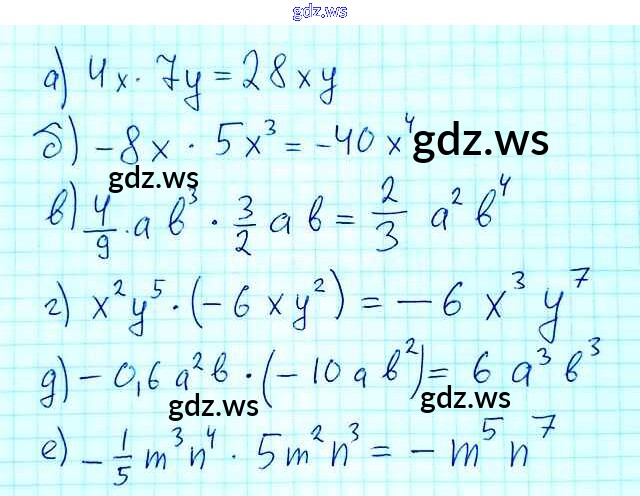 gdz.ws
а) 4x · 7y = 28xy
б) -8x · 5x³ = -40x⁴
gdz.ws
gdz.ws
в) 4/9 · ab³ · 3/2 ab = 2/3 a²b⁴
г) x²y⁵ · (-6xy²) = -6x³y⁷
д) -0,6a²b · (-10ab²) = 6a³b³
gdz.ws
gdz.ws
е) -1/5 m³n⁴ · 5m²n³ = -m⁵n⁷